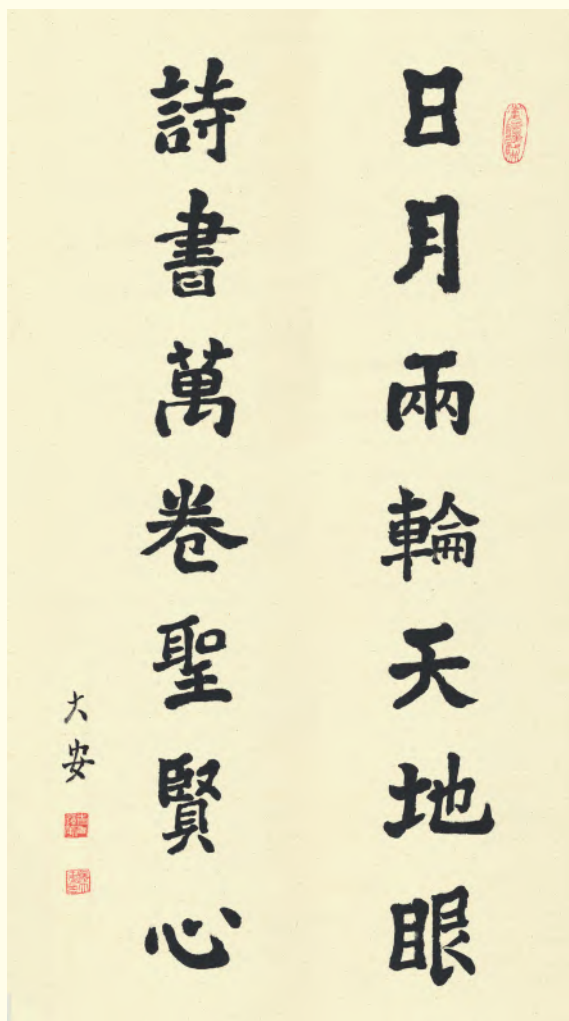 日月兩輪天地眼
詩書萬卷聖賢心
大安